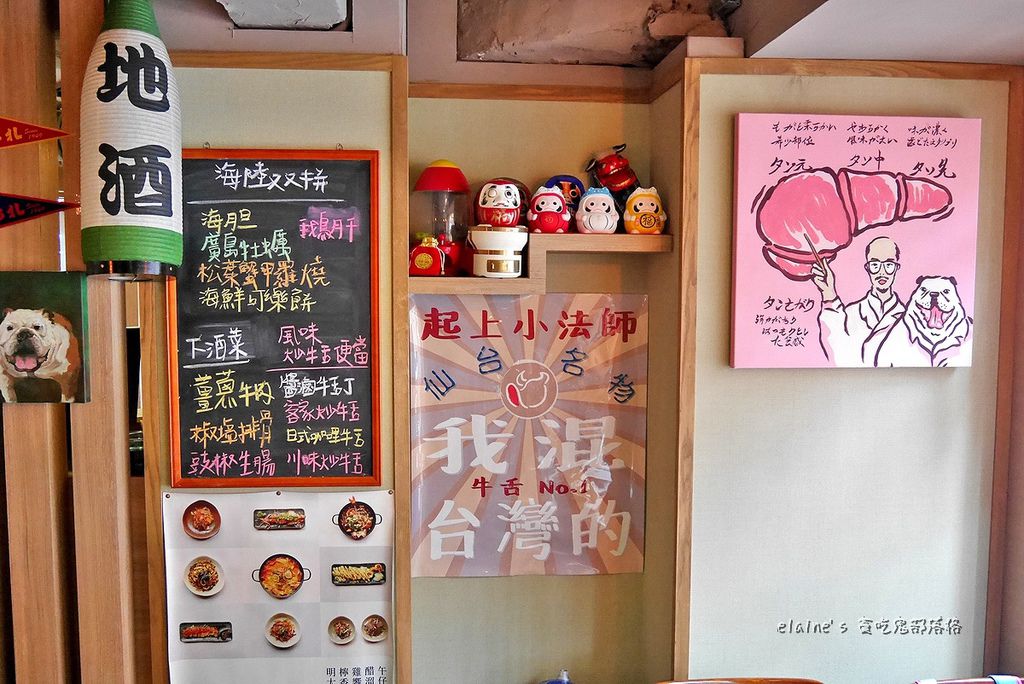 地酒
札
札
海陸双拼
海胆
鵝肝
廣島牡蠣
松葉蟹甲羅燒
海鮮可樂餅
下酒菜
薑蔥牛肉
椒塩排骨
豉椒生腸
風味
炒牛舌便當
醬滷牛舌丁
客家炒牛舌
日式咖哩牛舌
川味炒牛舌
起上小法師
仙台名物
我混
牛舌 No.1
台灣的
味が濃く
やわらかく
タン元
タン中
タン先
elaine's 貪吃鬼部落格